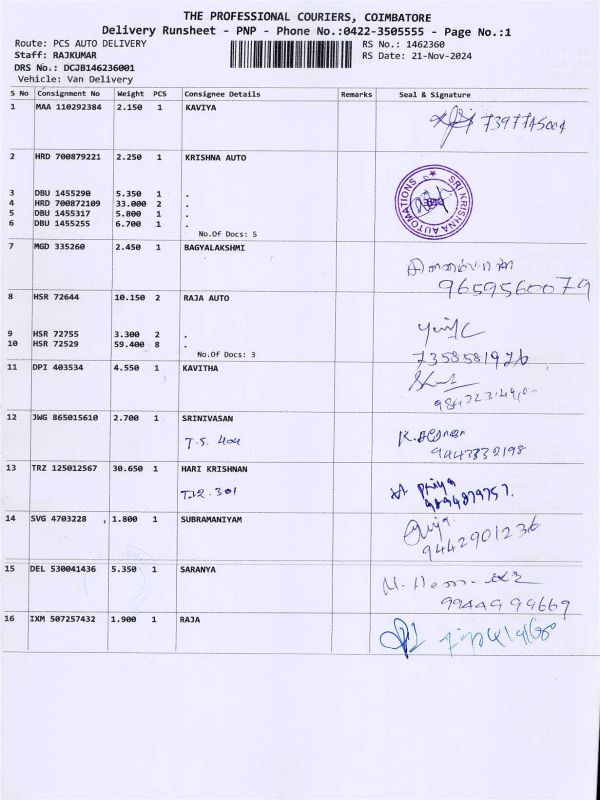 THE PROFESSIONAL COURIERS, COIMBATORE
Delivery Runsheet - PNP - Phone No.:0422-3505555 - Page No.:1
Route: PCS AUTO DELIVERY RS No.: 1462360
Staff: RAJKUMAR RS Date: 21-Nov-2024
DRS No.: DCJB146236001
Vehicle: Van Delivery
S No Consignment No Weight PCS Consignee Details Remarks Seal & Signature
1 MAA 110292384 2.150 1 KAVIYA
2 HRD 700879221 2.250 1 KRISHNA AUTO
SRI KRISHNA AUTOMATIONS
3 DBU 1455290 5.350 1 .
4 HRD 700872109 33.000 2 .
5 DBU 1455317 5.800 1 .
6 DBU 1455255 6.700 1 .
No.Of Docs: 5
7 MGD 335260 2.450 1 BAGYALAKSHMI
9659560079
8 HSR 72644 10.150 2 RAJA AUTO
9 HSR 72755 3.300 2 .
10 HSR 72529 59.400 8 .
No.Of Docs: 3
7358581926
11 DPI 403534 4.550 1 KAVITHA
12 JWG 865015610 2.700 1 SRINIVASAN
T.S. 404
9443332198
13 TRZ 125012567 30.650 1 HARI KRISHNAN
T12.301 Priya
9894879757.
14 SVG 4703228 1.800 1 SUBRAMANIYAM
9442901236
15 DEL 530041436 5.350 1 SARANYA
9944999669
16 IXM 507257432 1.900 1 RAJA